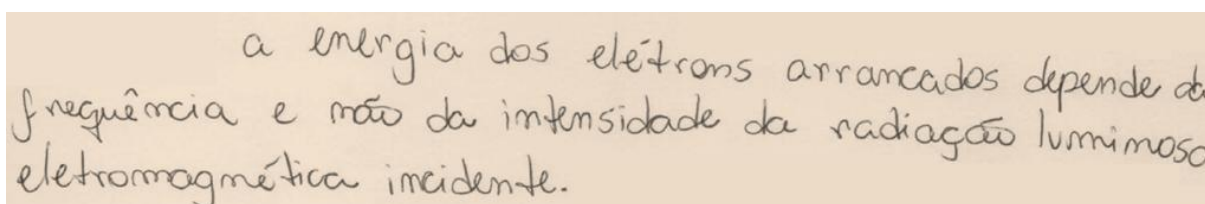 a energia dos elétrons arrancados depende da
frequência e não da intensidade da radiação luminosa
eletromagnética incidente.